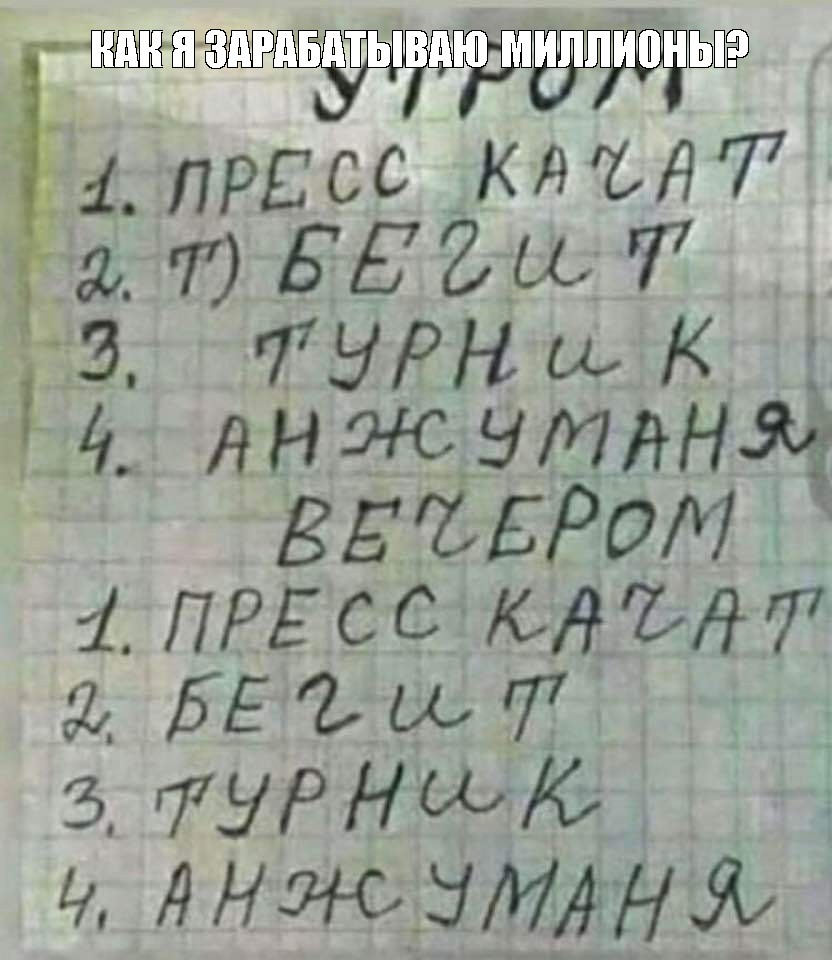 КАК Я ЗАРАБАТЫВАЮ МИЛЛИОНЫ?
УТРОМ
1. ПРЕСС КАЧАТ
2. Т) БЕГИТ
3. ТУРНИК
4. АНЖУМАНЯ
ВЕЧЕРОМ
1. ПРЕСС КАЧАТ
2. БЕГИТ
3. ТУРНИК
4. АНЖУМАНЯ